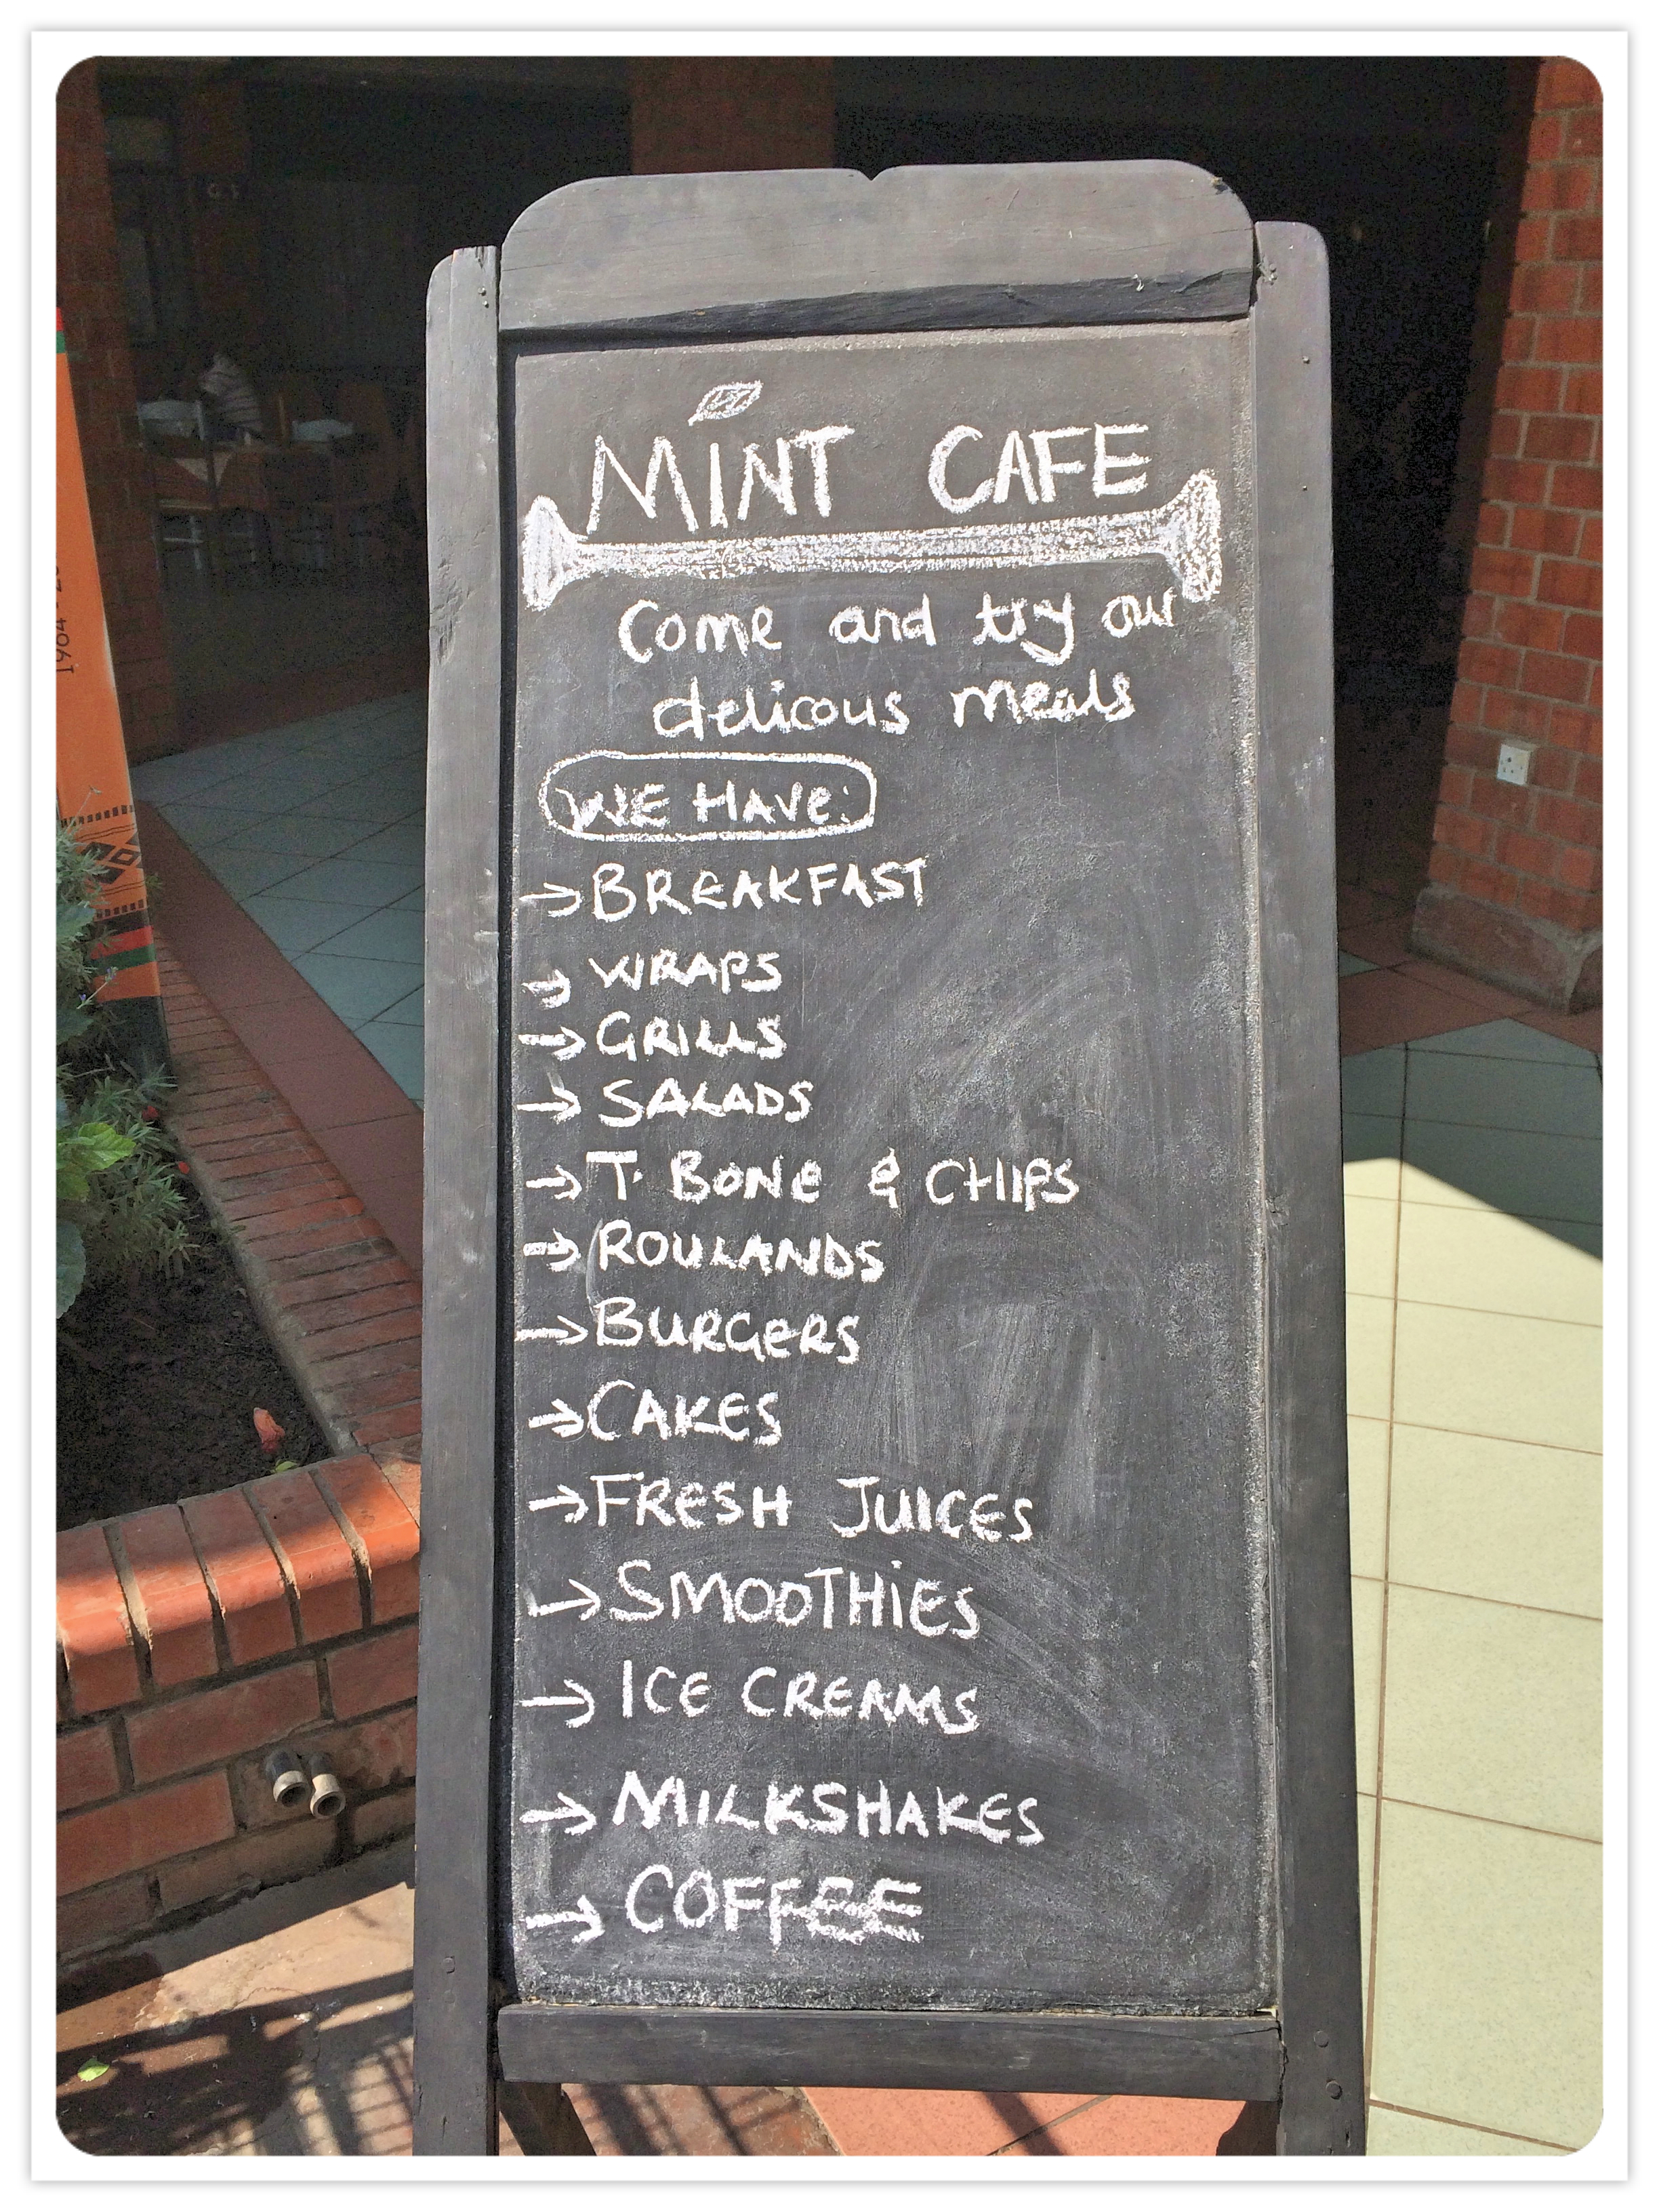 MINT CAFE
Come and try our
delicous meals
WE HAVE:
→ BREAKFAST
→ WRAPS
→ GRILLS
→ SALADS
→ T. BONE & CHIPS
→ ROULANDS
→ BURGERS
→ CAKES
→ FRESH JUICES
→ SMOOTHIES
→ ICE CREAMS
→ MILKSHAKES
→ COFFEE